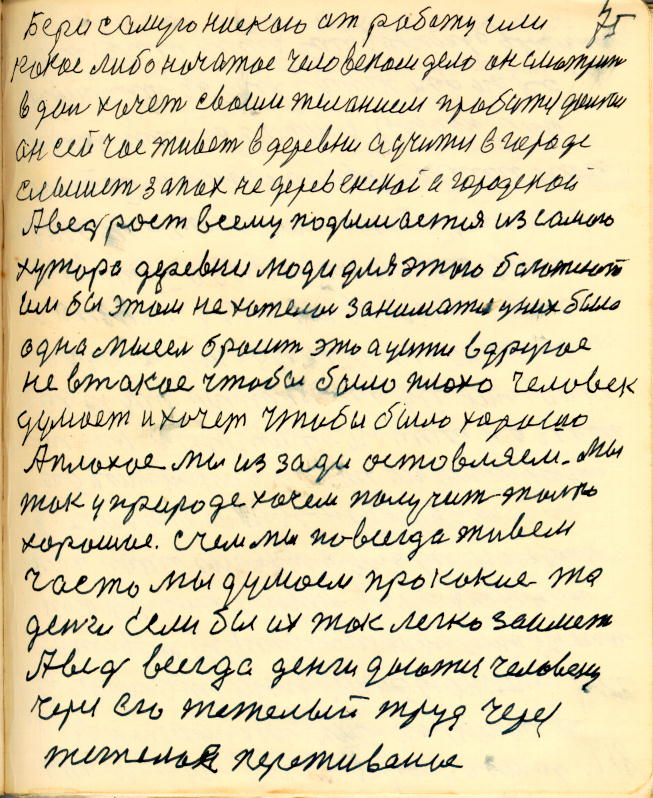 75
Бери самую ниского от работу или
какое либо начатое человеком дело он смотрит
в даль хочет своим желанием пробыть долго
он сей час живет в деревни а учити в городе
слышет запах не деревенской а городской
Аведь рост всему подымается из самого
хутора деревни люди для этого
им бы этом не хотелось занимати у них было
одна мысел бросит это а уйти в другое
не в такое чтобы было плохо человек
думает и хочет чтобы было хорошо
Аплохое мы из зади оставляем. Мы
так у природе хочем получит толко
хорошое. с чем мы повсегда живем
Часто мы думаем про какие та
денги если бы их так легко заимет
Аведь всегда денги должи человеку
через его тежелый труд через
тежелое переживание